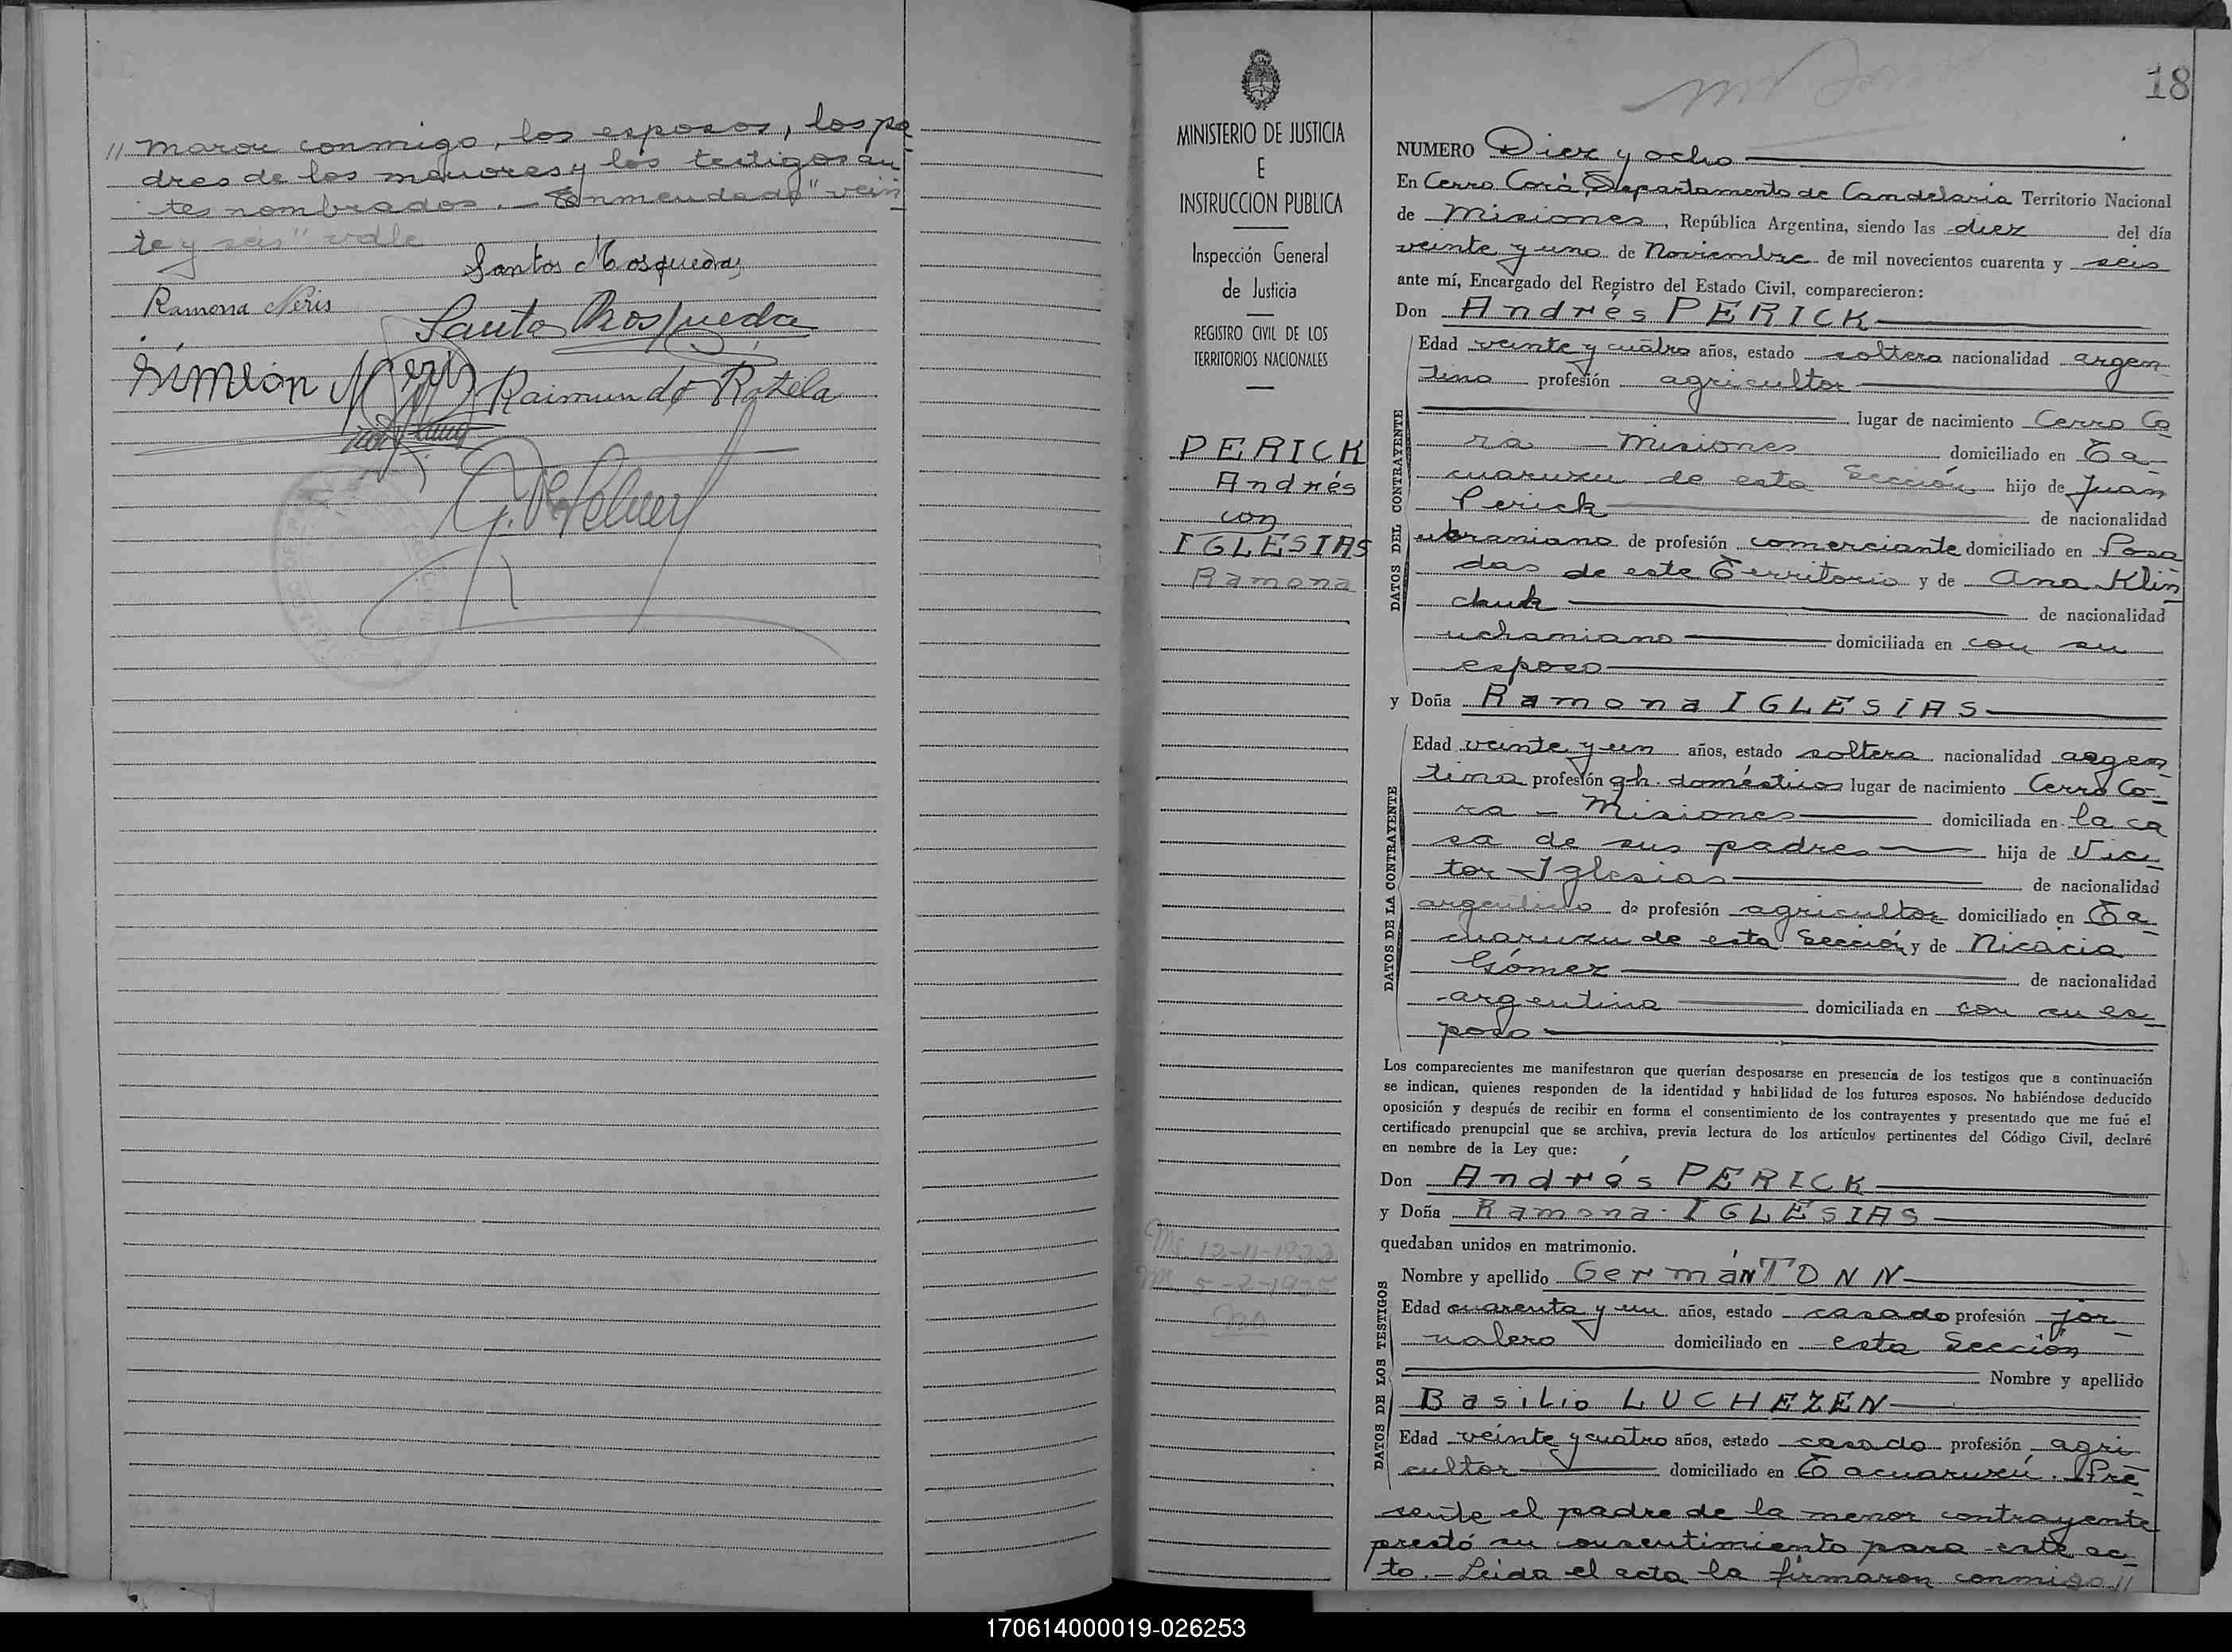 // maron conmigo, los esposos, los pa-
dres de los menores y los testigos an-
tes nombrados.- Enmendado "vein-
te y seis" vale
Santos Mosqueda
Ramona Neris
Santos Mosqueda
Simeón Neris
Raimundo Rotela
18
MINISTERIO DE JUSTICIA
E
INSTRUCCION PUBLICA
Inspección General
de Justicia
REGISTRO CIVIL DE LOS
TERRITORIOS NACIONALES
PERICK
Andrés
con
IGLESIAS
Ramona
Ms. 12-11-1922
M 5-2-1925
NUMERO Diez y ocho
En Cerro Corá, Departamento de Candelaria Territorio Nacional
de Misiones, República Argentina, siendo las diez del día
veinte y uno de Noviembre de mil novecientos cuarenta y seis
ante mí, Encargado del Registro del Estado Civil, comparecieron:
Don Andrés PERICK
DATOS DEL CONTRAYENTE
Edad veinte y cuatro años, estado soltero nacionalidad argen-
tino profesión agricultor
lugar de nacimiento Cerro Co-
rá - Misiones domiciliado en Ta-
cuaruzu de esta Sección hijo de Juan
Perick de nacionalidad
ukraniano de profesión comerciante domiciliado en Posa
das de este Territorio y de Ana Klin
chuk de nacionalidad
uchamiano domiciliada en con su
esposo
y Doña Ramona IGLESIAS
DATOS DE LA CONTRAYENTE
Edad veinte y un años, estado soltera nacionalidad argen-
tina profesión qh. domésticos lugar de nacimiento Cerro Co-
ra - Misiones domiciliada en la ca
sa de sus padres hija de Vic-
tor Iglesias de nacionalidad
argentino de profesión agricultor domiciliado en Ta-
cuaruzu de esta Sección y de Nicacia
Gómez de nacionalidad
argentina domiciliada en con su es-
poso
Los comparecientes me manifestaron que querían desposarse en presencia de los testigos que a continuación
se indican, quienes responden de la identidad y habilidad de los futuros esposos. No habiéndose deducido
oposición y después de recibir en forma el consentimiento de los contrayentes y presentado que me fué el
certificado prenupcial que se archiva, previa lectura de los artículos pertinentes del Código Civil, declaré
en nombre de la Ley que:
Don Andrés PERICK
y Doña Ramona IGLESIAS
quedaban unidos en matrimonio.
DATOS DE LOS TESTIGOS
Nombre y apellido Germán TONN
Edad cuarenta y un años, estado casado profesión jor-
nalero domiciliado en esta Sección
Nombre y apellido
Basilio LUCHEZEN
Edad veinte y cuatro años, estado casado profesión agri-
cultor domiciliado en Tacuaruzú. Pre-
sente el padre de la menor contrayente
prestó su consentimiento para este ac-
to.- Leída el acta la firmaron conmigo //
170614000019-026253